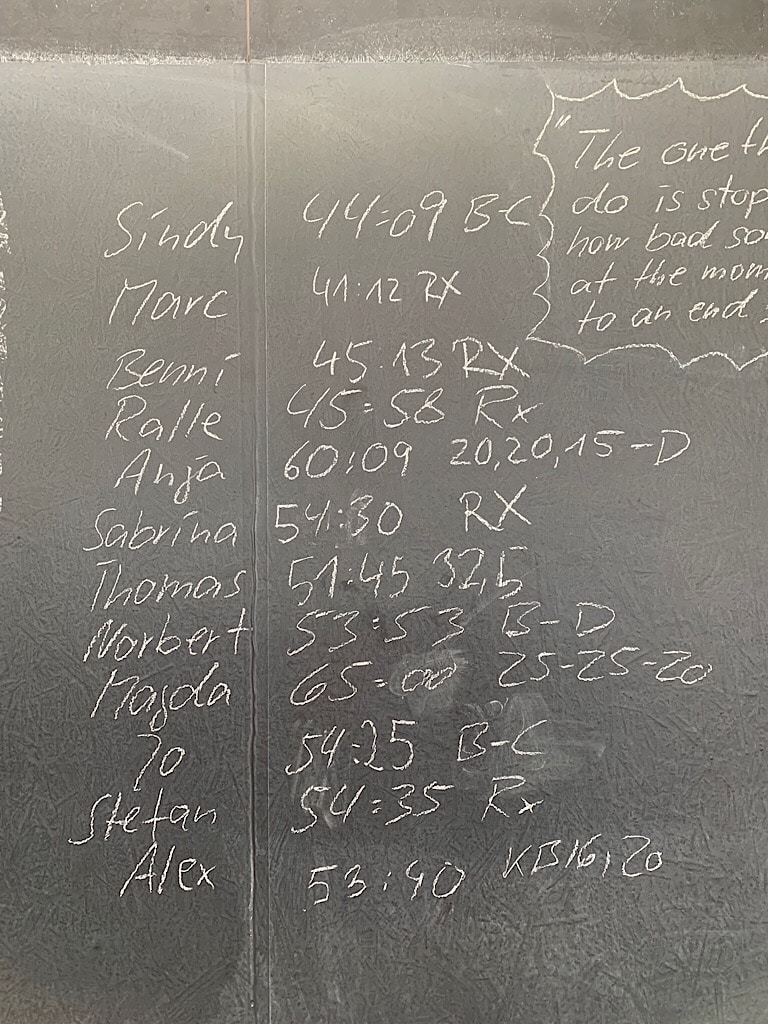 "The one th
do is stop
how bad so
at the mom
to an end
Sindy 44:09 B-C
Marc 41:12 RX
Benni 45:13 RX
Ralle 45:58 Rx
Anja 60:09 20,20,15-D
Sabrina 54:30 RX
Thomas 51:45 32,5
Norbert 53:53 B-D
Magda 65:00 25-25-20
Jo 54:25 B-C
Stefan 54:35 Rx
Alex 53:40 KB16,20